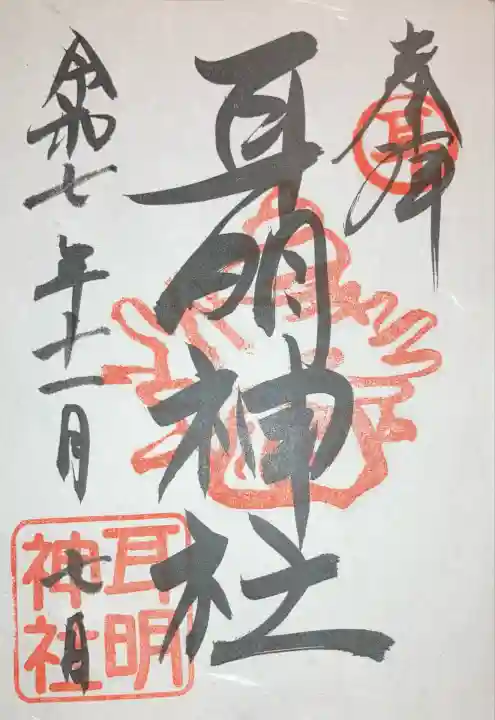 奉拝
耳
耳明神社
令和七年十一月七日
耳明
神社